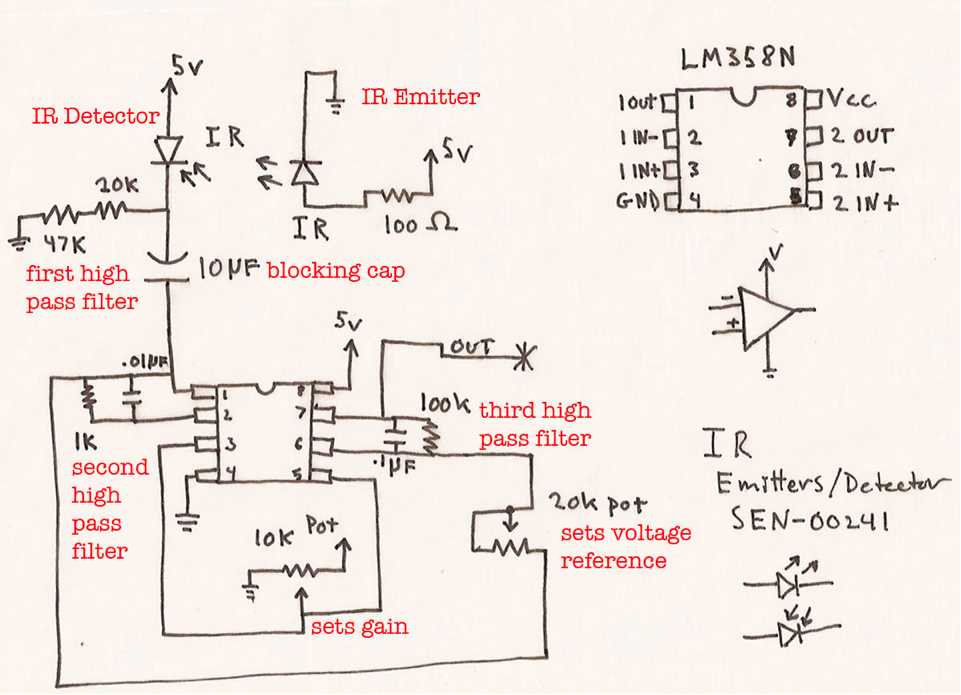 5v
IR Detector
IR
20K
47K
first high
pass filter
10µF blocking cap
IR Emitter
5v
IR
100 Ω
LM358N
1out 1 8 Vcc
1 IN- 2 7 2 OUT
1 IN+ 3 6 2 IN-
GND 4 5 2 IN+
V
-
+
.01µF
1K
second
high
pass
filter
5v
1 8
2 7
3 6
4 5
OUT
100k
third high
pass filter
.1µF
10K Pot
sets gain
20k pot
sets voltage
reference
IR
Emitters/Detector
SEN-00241